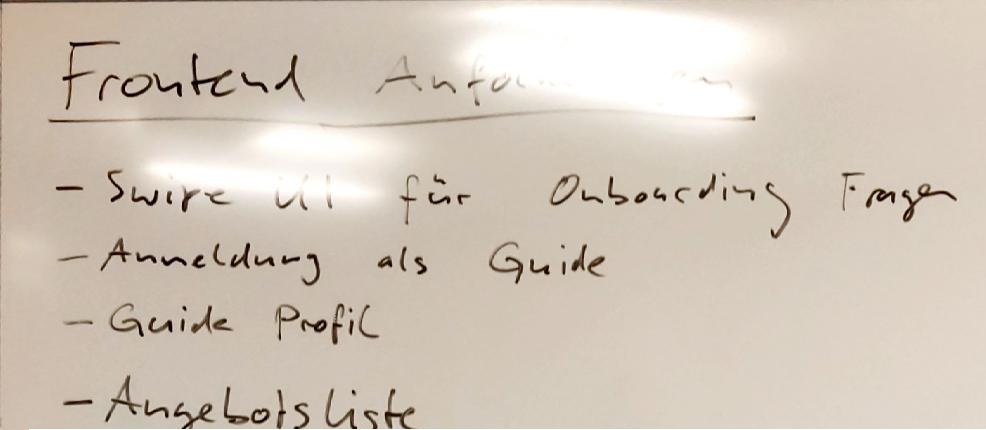 Frontend
- Swipe UI für Onboarding Fragen
- Anmeldung als Guide
- Guide Profil
- Angebotsliste